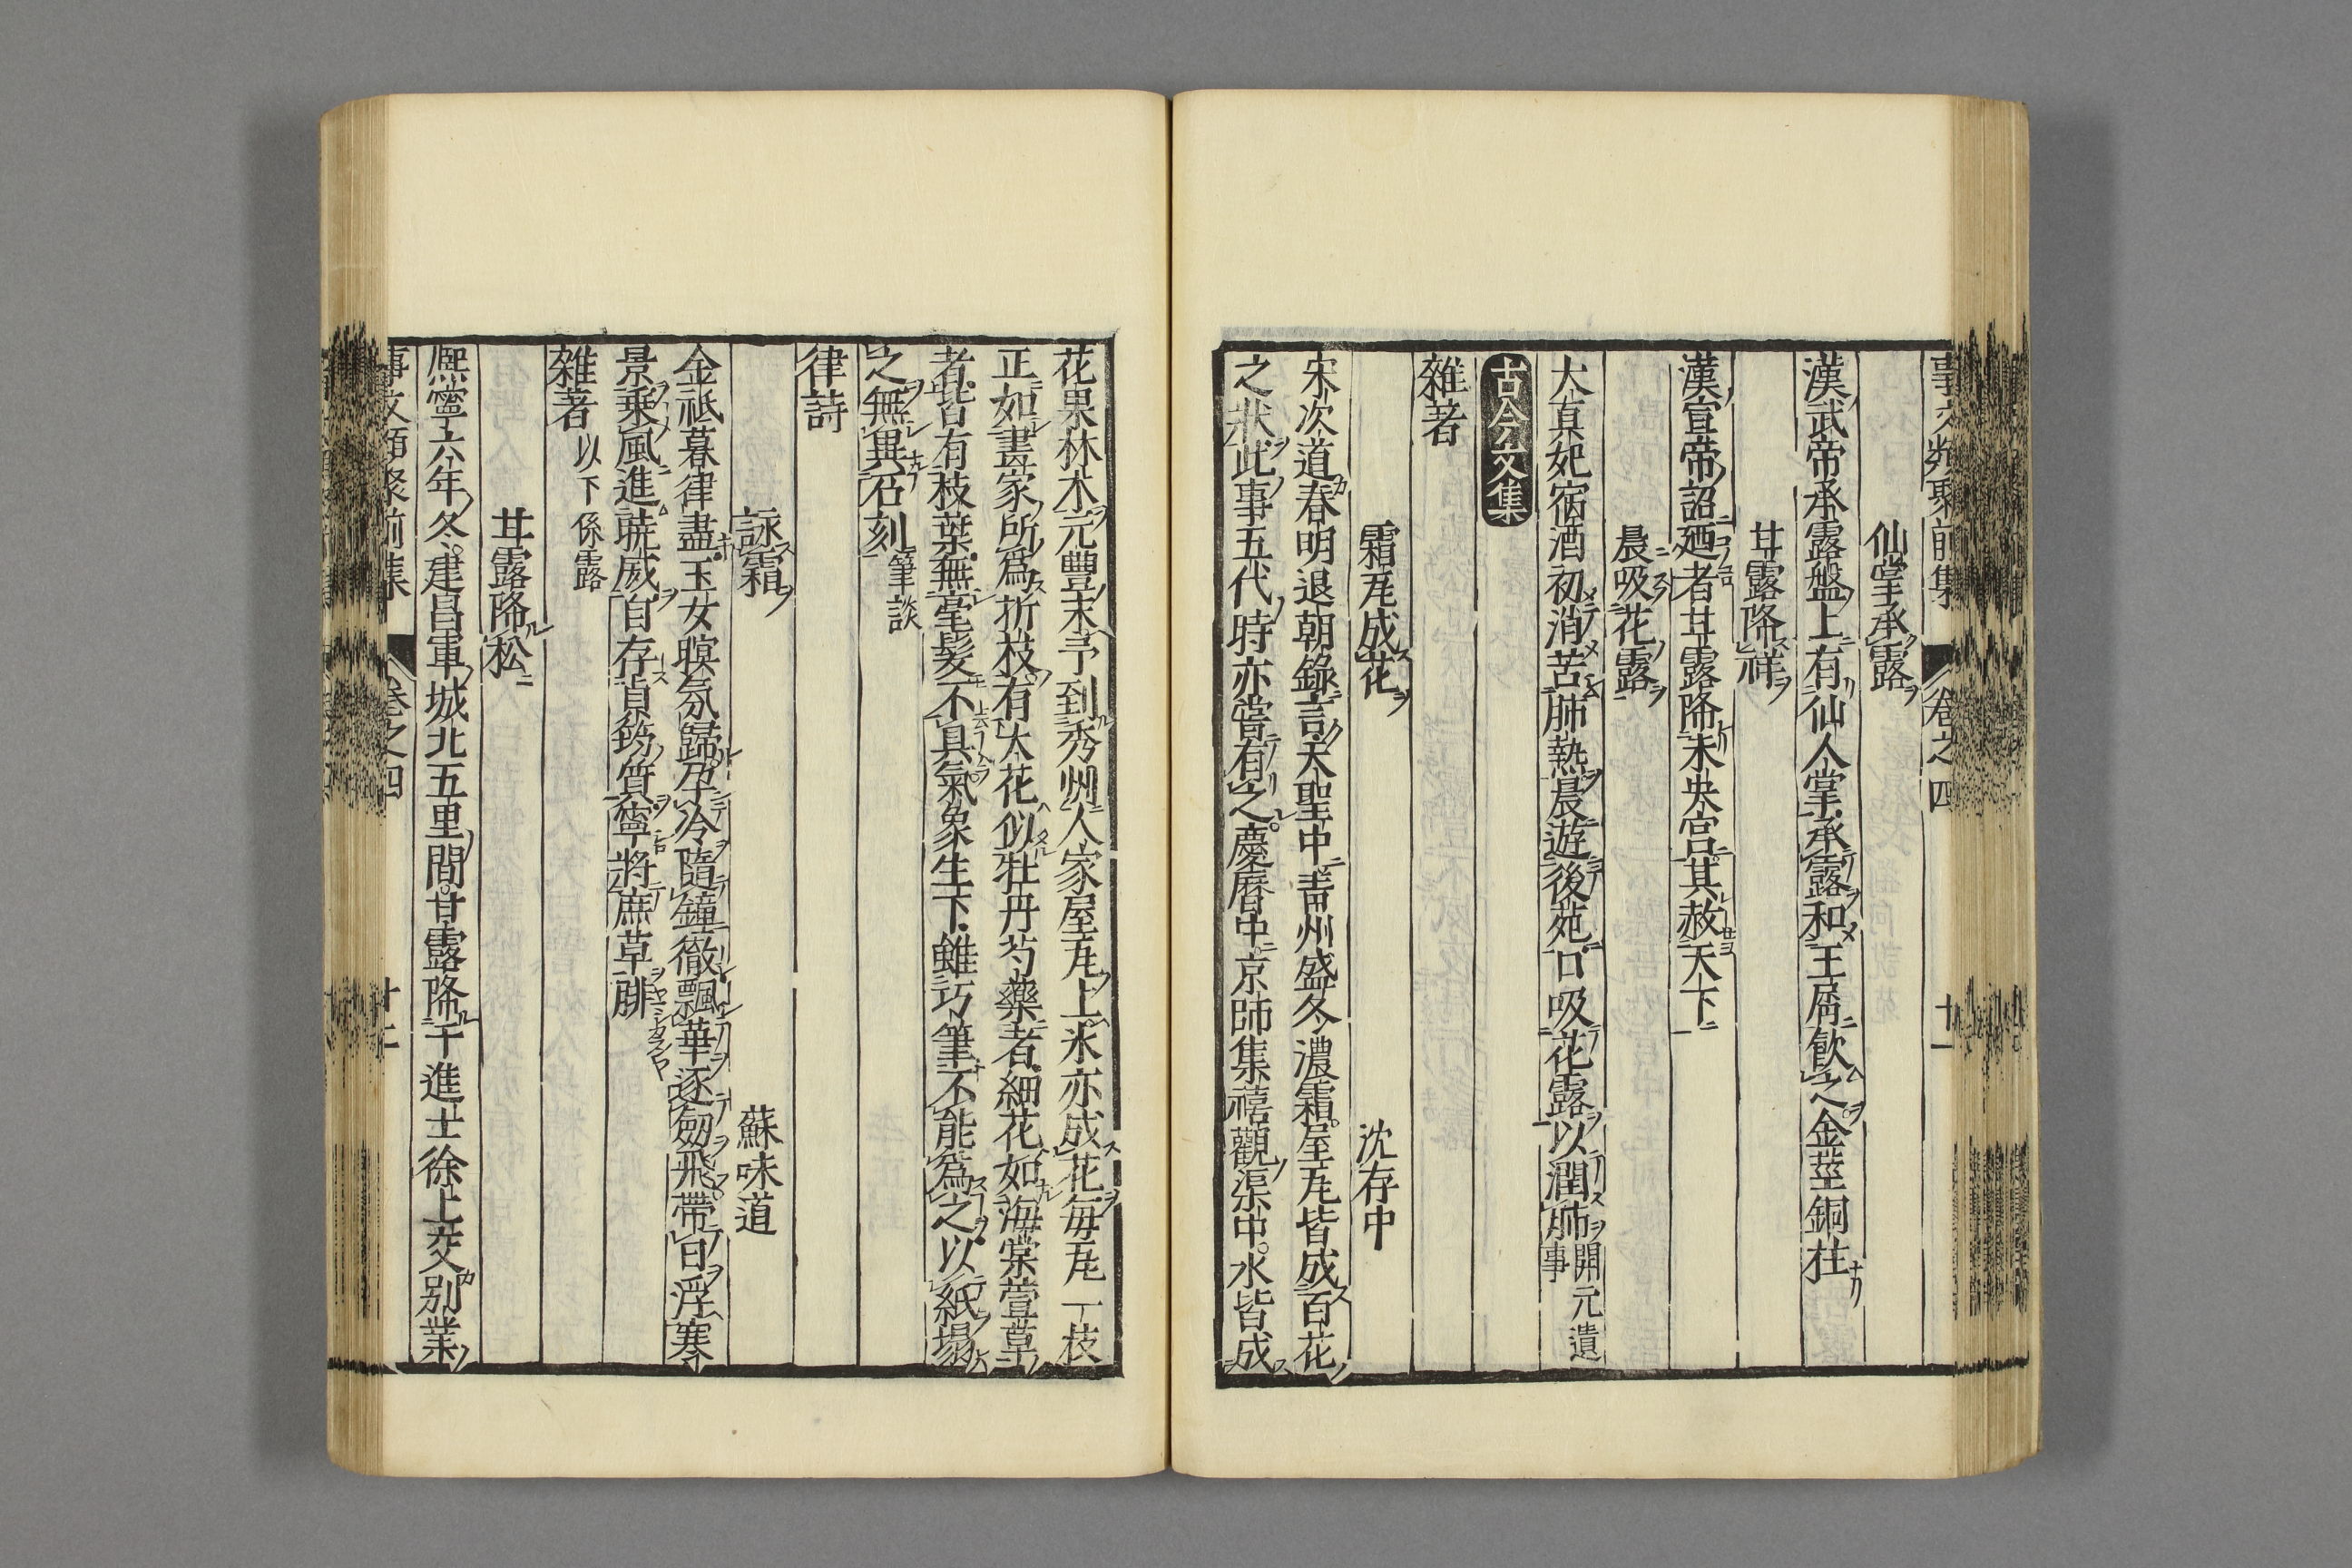 事文類聚前集 卷之四 十一
仙掌承露
漢武帝承露盤上有仙人掌承露和玉屑飲之金莖銅柱
甘露降祥
漢宣帝詔廼者甘露降未央宮其赦天下
晨吸花露
大真妃宿酒初消苦肺熱晨遊後苑口吸花露以潤肺開元遺事
古今文集
雜著
霜瓦成花 沈存中
宋次道春明退朝錄言天聖中青州盛冬濃霜屋瓦皆成百花
之狀此事五代時亦嘗有之慶曆中京師集禧觀渠中水皆成
花果林木元豐末予到秀州人家屋瓦上氷亦成花每瓦一枝
正如畫家所爲折枝有大花似牡丹芍藥者細花如海棠萱草
者皆有枝葉無毫髮不具氣象生下雖巧筆不能爲之以紙搨
之無異石刻筆談
律詩
詠霜 蘇味道
金祇暮律盡玉女暝氛歸孕冷隨鐘徹飄華逐劒飛帶日浮寒
景乗風進曉威自存貞筠質寧將庶草腓
雜著以下係露
甘露降松
熈寧六年冬建昌軍城北五里間甘露降于進士徐上交別業
事文類聚前集 卷之四